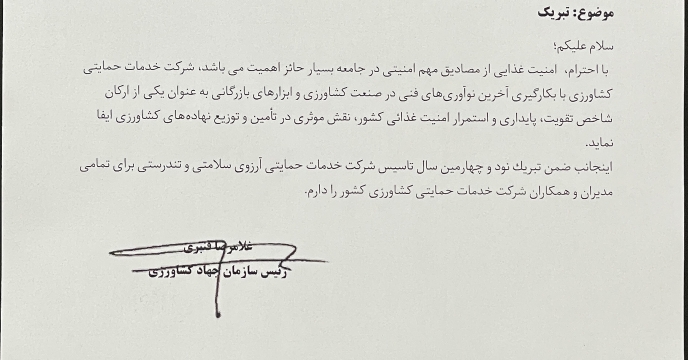 موضوع: تبریک
سلام علیکم؛
با احترام، امنیت غذایی از مصادیق مهم امنیتی در جامعه بسیار حائز اهمیت می باشد، شرکت خدمات حمایتی
کشاورزی با بکارگیری آخرین نوآوری‌های فنی در صنعت کشاورزی و ابزارهای بازرگانی به عنوان یکی از ارکان
شاخص تقویت، پایداری و استمرار امنیت غذائی کشور، نقش موثری در تأمین و توزیع نهاده‌های کشاورزی ایفا
نماید.
اینجانب ضمن تبریك نود و چهارمین سال تاسیس شرکت خدمات حمایتی آرزوی سلامتی و تندرستی برای تمامی
مدیران و همکاران شرکت خدمات حمایتی کشاورزی کشور را دارم.
غلامرضا قنبری
رئیس سازمان جهاد کشاورزی